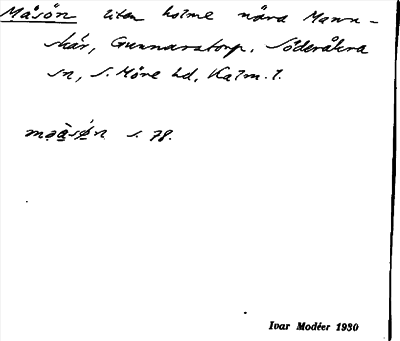 Måsön liten holme nära Mann-
skär, Gunnarstorp, Söderåkra
sn, S. Möre hd, Kalm. l.
s. 78.
Ivar Modéer 1930